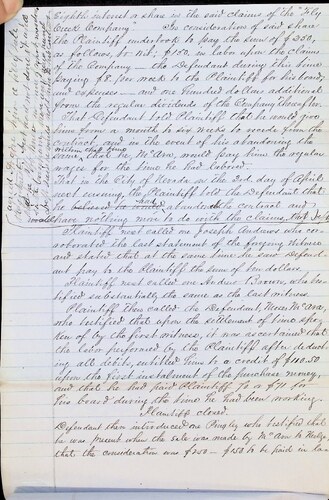 Eighth interest a share in the said claims of the "Fly
Creek Company." In consideration of said share
the Plaintiff undertook to pay the sum of $250,
as follows to wit, $150, in labor upon the claims
of the Company — the Defendant during this time
paying $8. per week to the Plaintiff for his board
and expenses — and one Hundred dollars additional
from the regular dividends of the Company thereafter.
That Defendant told Plaintiff that he would give
him from a month to six weeks to recede from the
contract, and in the event of his abandoning the
within that time
same, that he, McAra, would pay him the regular
wages for the time he had labored.
That in the City of Nevada on the 3rd day of April
next ensuing, the Plaintiff told the Defendant that
he to abandon the contract and
would have nothing more to do with the claims,
Plaintiff next called one Joseph Andrews who cor-
roborated the last statement of the forgoing witness
and stated that at the same time he saw Defend-
ant pay to the Plaintiff the sum of ten dollars.
Plaintiff next called one Andrew Brown, who tes-
tified substantially the same as the last witness.
Plaintiff then called the Defendant, McAra,
who testified that upon the settlement of time spo-
ken of by the first witness, it was ascertained that
the labor performed by the Plaintiff after deduct-
ing all debts, entitled him to a credit of $110.50
upon the first instalment of the purchase money,
and that he had paid Plaintiff 70 or $71 for
his board during the time he had been working.
Plaintiff closed.
Defendant then introduced one Pingley who testified that
he was present when the sale was made by McAra to
that the consideration was $250 — $150 to be paid in la-